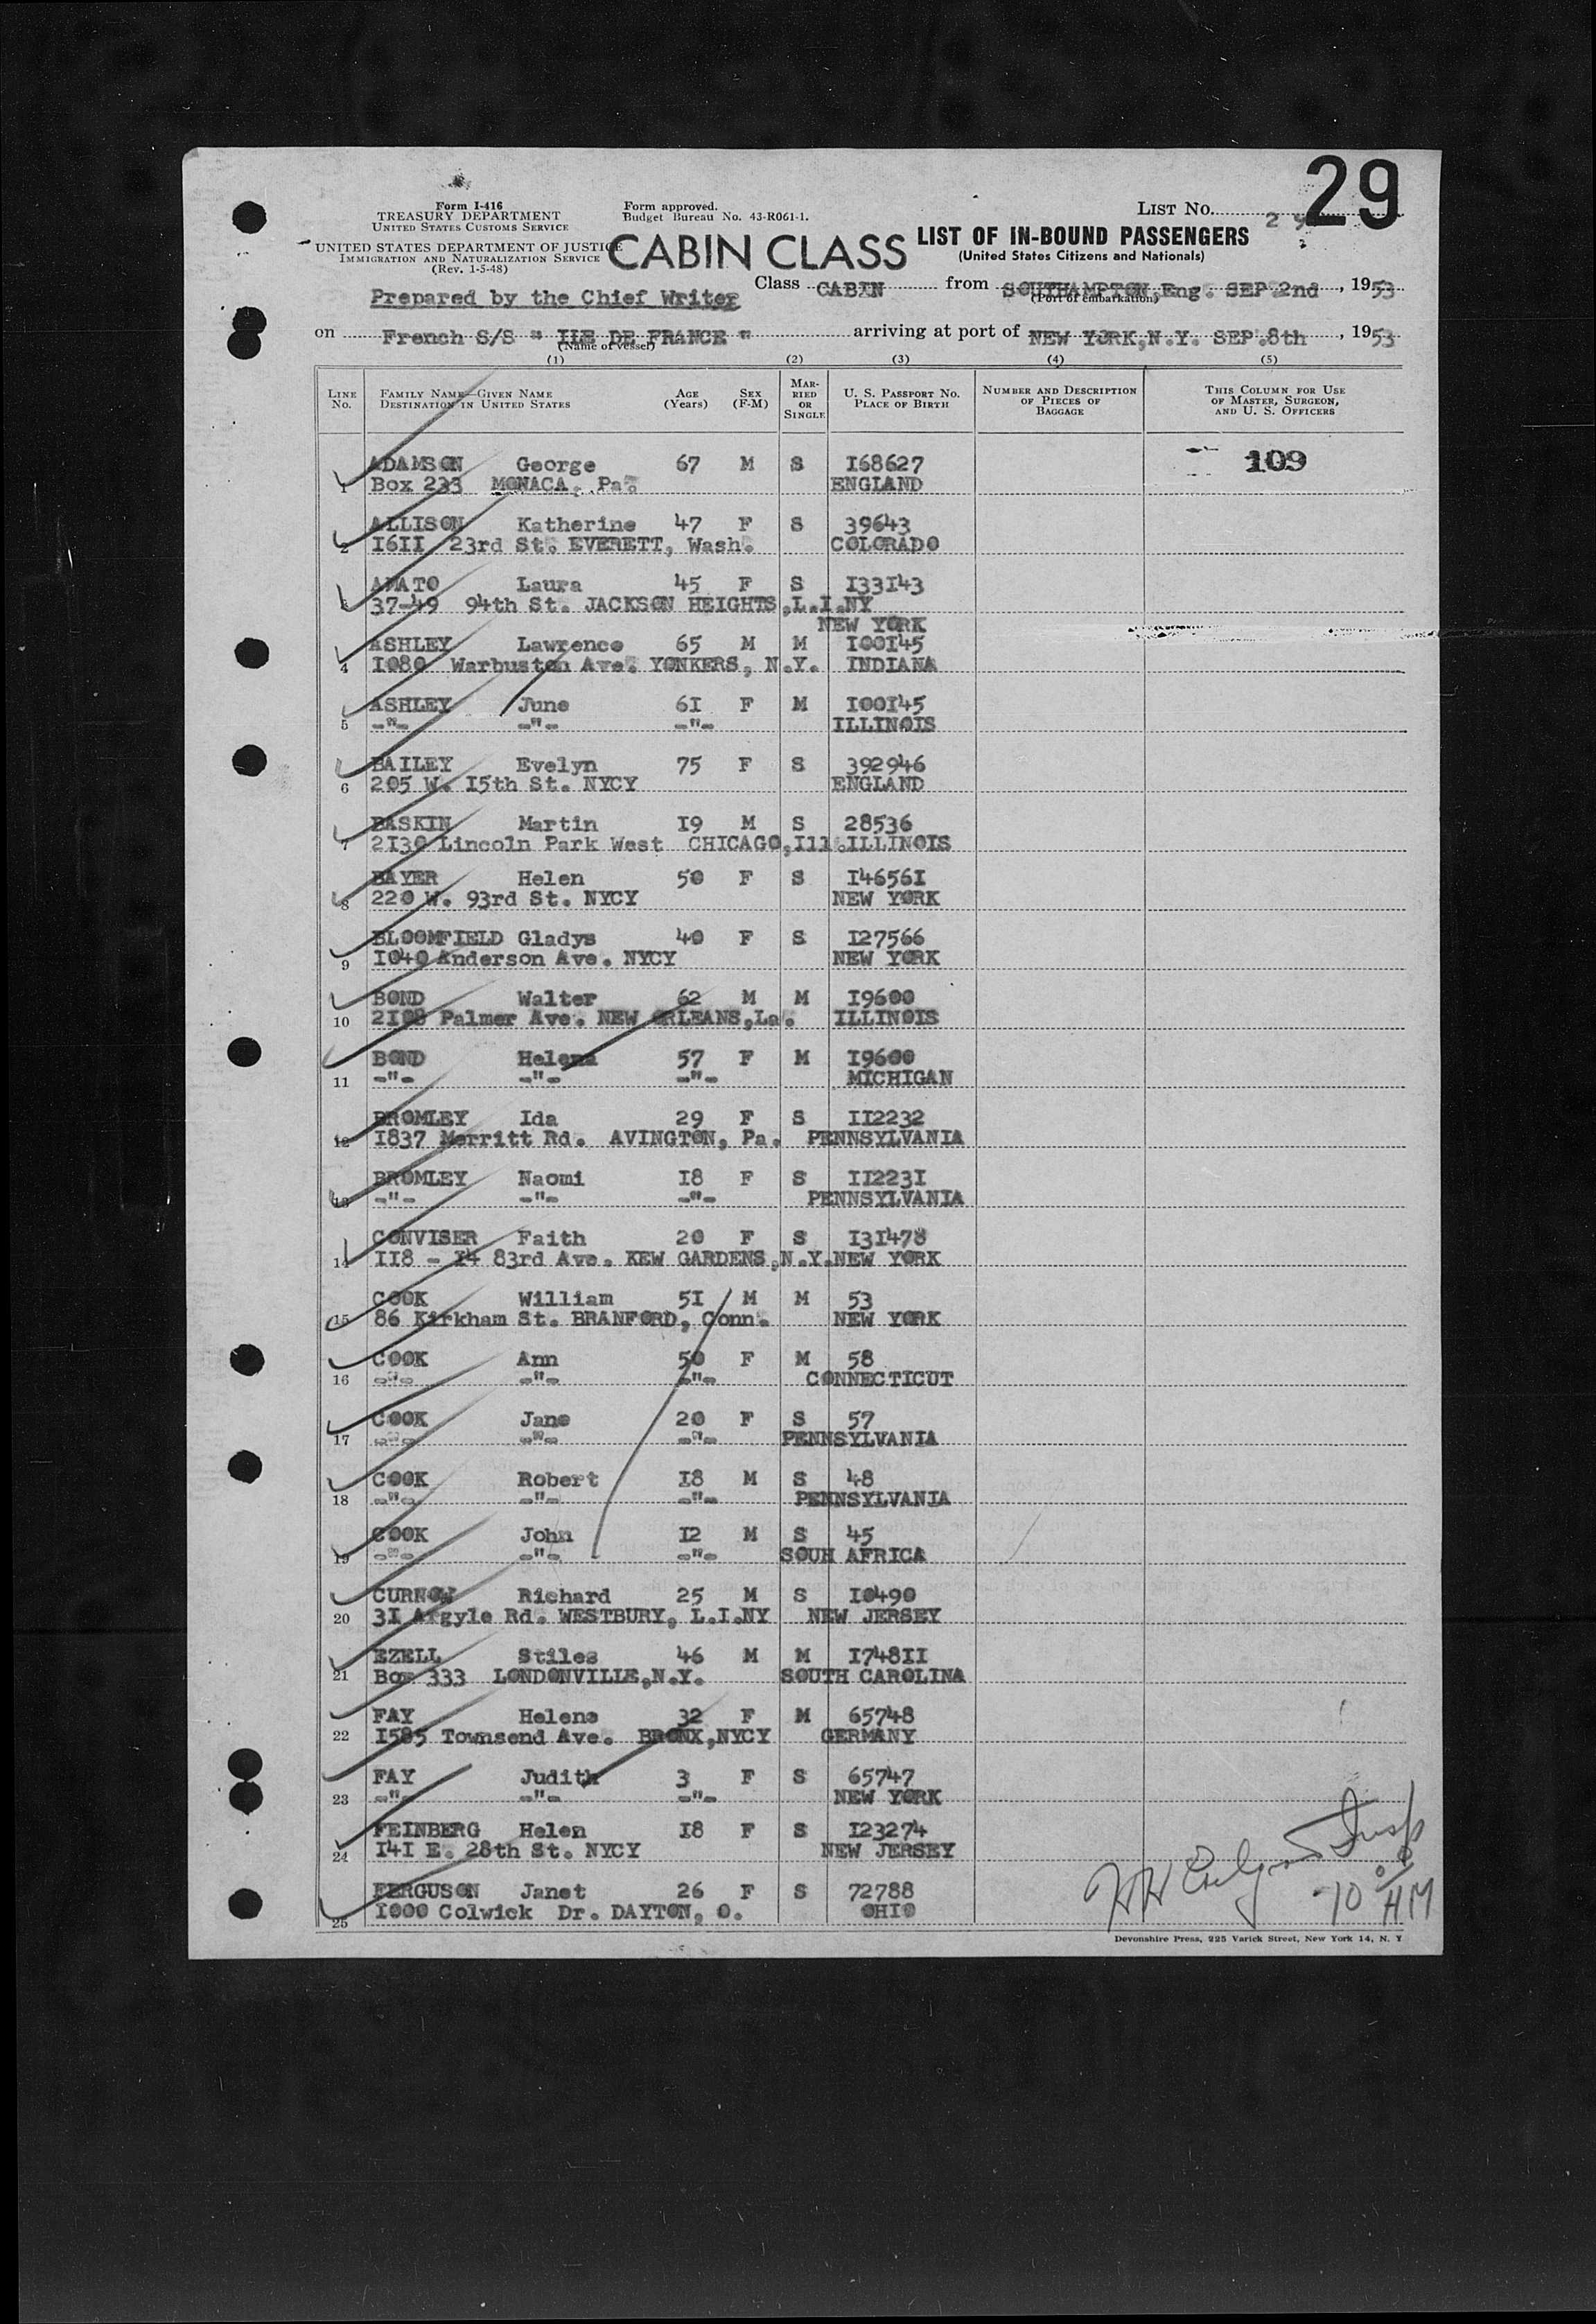 29
Form I-416
TREASURY DEPARTMENT
UNITED STATES CUSTOMS SERVICE
Form approved.
Budget Bureau No. 43-R061-1.
LIST NO. 29
UNITED STATES DEPARTMENT OF JUSTICE
IMMIGRATION AND NATURALIZATION SERVICE
(Rev. 1-5-48)
CABIN CLASS
LIST OF IN-BOUND PASSENGERS
(United States Citizens and Nationals)
Prepared by the Chief Writer
Class CABIN from SOUTHAMPTON, Eng. SEP 2nd, 1953
(Port of embarkation)
on French S/S " ILE DE FRANCE " arriving at port of NEW YORK,N.Y. SEP.8th, 1953
(Name of vessel)
(1) (2) (3) (4) (5)
LINE NO. FAMILY NAME—GIVEN NAME DESTINATION IN UNITED STATES AGE (Years) SEX (F-M) MARRIED OR SINGLE U. S. PASSPORT NO. PLACE OF BIRTH NUMBER AND DESCRIPTION OF PIECES OF BAGGAGE THIS COLUMN FOR USE OF MASTER, SURGEON, AND U. S. OFFICERS
ADAMSON George 67 M S I68627 109
1 Box 233 MONACA, Pa. ENGLAND
ALLISON Katherine 47 F S 39643
2 I6II 23rd St. EVERETT, Wash. COLORADO
AMATO Laura 45 F S I33I43
37-49 94th St. JACKSON HEIGHTS,L.I.NY
NEW YORK
ASHLEY Lawrence 65 M M I00I45
4 I080 Warbuston Ave. YONKERS, N.Y. INDIANA
ASHLEY June 6I F M I00I45
5 -"- -"- -"- ILLINOIS
BAILEY Evelyn 75 F S 392946
6 205 W. I5th St. NYCY ENGLAND
BASKIN Martin I9 M S 28536
7 2I30 Lincoln Park West CHICAGO,Ill.ILLINOIS
BAYER Helen 50 F S I4656I
8 220 W. 93rd St. NYCY NEW YORK
BLOOMFIELD Gladys 40 F S I27566
9 I040 Anderson Ave. NYCY NEW YORK
BOND Walter 62 M M I9600
10 2I08 Palmer Ave. NEW ORLEANS,La. ILLINOIS
BOND Helena 57 F M I9600
11 -"- -"- -"- MICHIGAN
BROMLEY Ida 29 F S II2232
12 I837 Merritt Rd. AVINGTON, Pa. PENNSYLVANIA
BROMLEY Naomi I8 F S II223I
13 -"- -"- -"- PENNSYLVANIA
CONVISER Faith 20 F S I3I478
14 II8 - I4 83rd Ave. KEW GARDENS,N.Y.NEW YORK
COOK William 5I M M 53
15 86 Kirkham St. BRANFORD, Conn. NEW YORK
COOK Ann 50 F M 58
16 -"- -"- -"- CONNECTICUT
COOK Jane 20 F S 57
17 -"- -"- -"- PENNSYLVANIA
COOK Robert I8 M S 48
18 -"- -"- -"- PENNSYLVANIA
COOK John I2 M S 45
19 -"- -"- -"- SOUH AFRICA
CURNOW Richard 25 M S I0490
20 3I Argyle Rd. WESTBURY, L.I.NY NEW JERSEY
EZELL Stiles 46 M M I748II
21 Box 333 LONDONVILLE,N.Y. SOUTH CAROLINA
FAY Helene 32 F M 65748
22 I585 Townsend Ave. BRONX,NYCY GERMANY
FAY Judith 3 F S 65747
23 -"- -"- -"- NEW YORK
FEINBERG Helen I8 F S I23274
24 I4I E. 28th St. NYCY NEW JERSEY
FERGUSON Janet 26 F S 72788
25 I000 Colwick Dr. DAYTON, O. OHIO
Insp
10 AM
Devonshire Press, 225 Varick Street, New York 14, N. Y